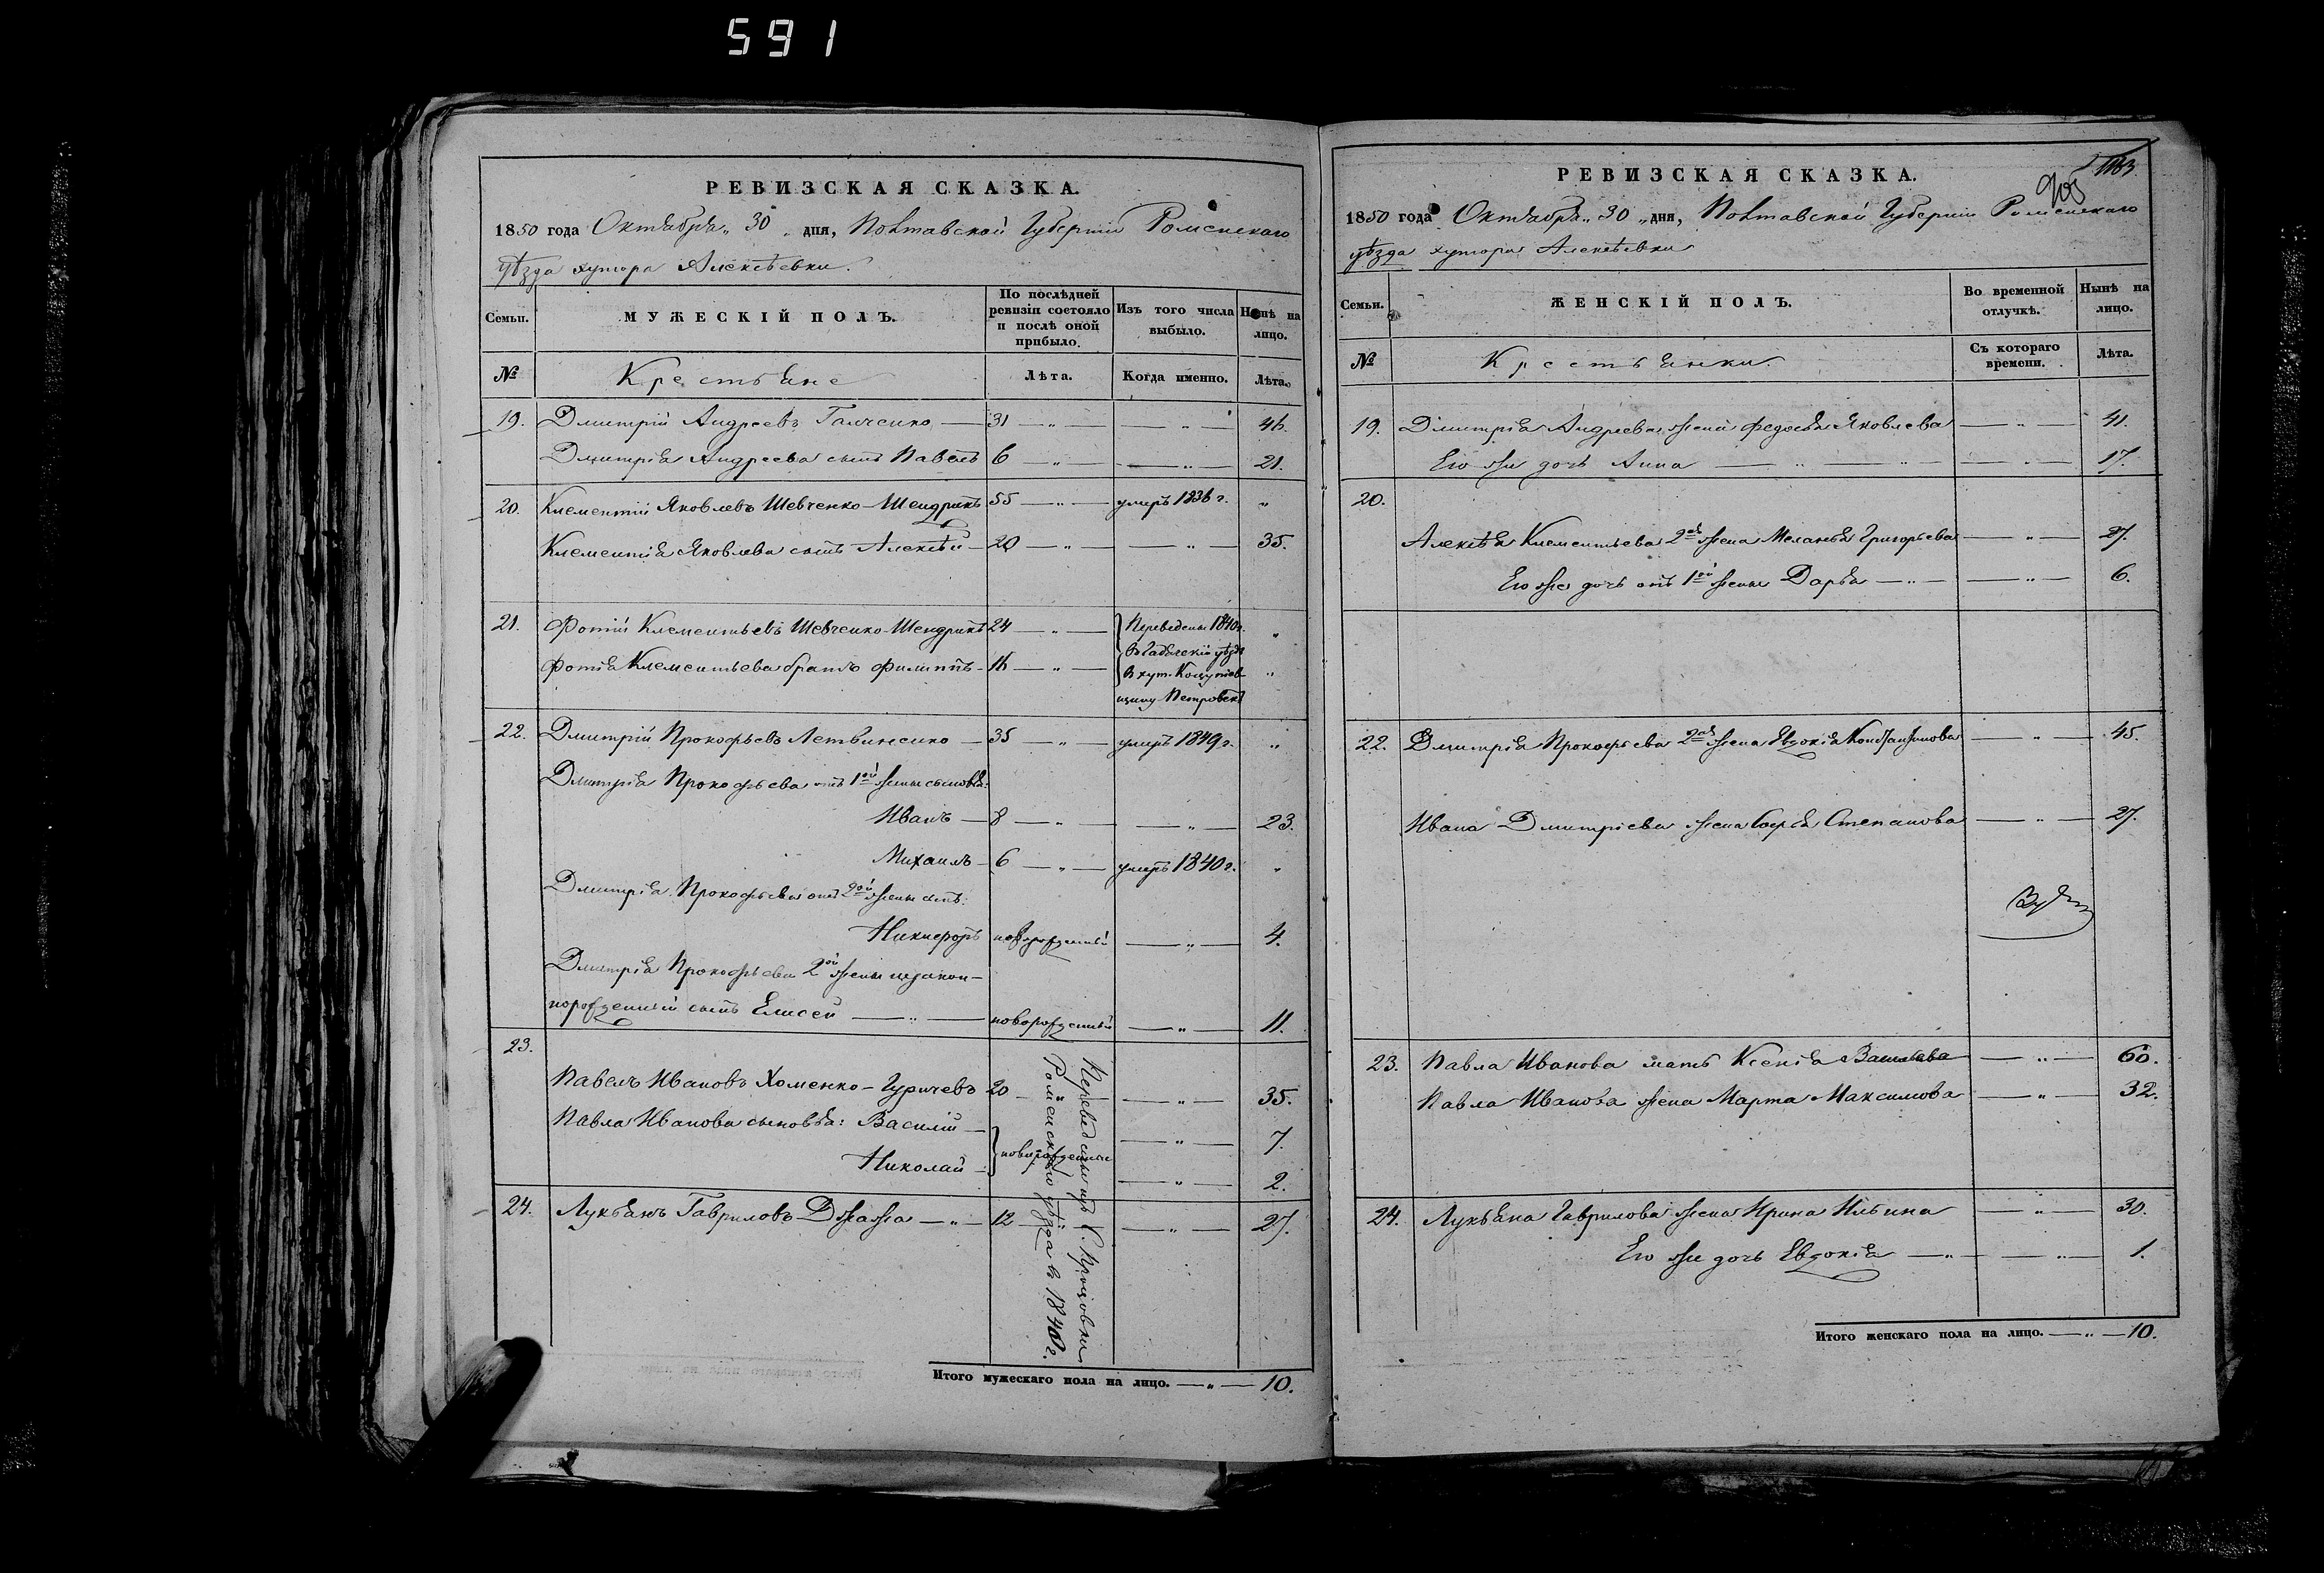 591
РЕВИЗСКАЯ СКАЗКА.
1850 года Октября „ 30 „ дня, Полтавской Губерніи Роменскаго
уѣзда хутора Алексѣевки.
Семьи.
МУЖЕСКІЙ ПОЛЪ.
По послѣдней ревизіи состояло и послѣ оной прибыло.
Изъ того числа выбыло.
Нынѣ на лицо.
№
Крестьяне
Лѣта.
Когда именно.
Лѣта.
19. Дмитрій Андреевъ Галченко — 31 — „ — — „ — 46.
Дмитрія Андреева сынъ Павелъ 6 — „ — — „ — 21.
20. Климентій Яковлевъ Шевченко-Шендрикъ 55 — „ — умеръ 1836 г. „
Климентія Яковлева сынъ Алексѣй — 20 — „ — — „ — 35.
21. Фотій Климентьевъ Шевченко-Шендрикъ 24 — „ — Переведены 1840 г. „
Фотія Климентьева братъ Филиппъ — 16 — „ — въ Гадячскій уѣздъ „
в хут.
22. Дмитрій Прокофьевъ Летвиненко — 35 — „ — умеръ 1849 г. „
Дмитрія Прокофьева отъ 1ой жены сыновья:
Иванъ — 8 — „ — — „ — 23.
Михаилъ — 6 — „ — умеръ 1840 г. „
Дмитрія Прокофьева отъ 2ой жены сынъ:
Никифоръ новорожденный — „ — 4.
Дмитрія Прокофьева 2ой жены незакон-
норожденный сынъ Елисей — „ — новорожденный — „ — 11.
23.
Павелъ Ивановъ Хоменко-Гуричевъ 20 — „ — 35.
Павла Иванова сыновья: Василій — — „ — 7.
Николай — новорожденные — „ — 2.
Переведены изъ с. Процовки
Роменскаго уѣзда въ 1840 г.
24. Лукьянъ Гавриловъ Джаджа — „ — 12 — „ — 27.
Итого мужескаго пола на лицо. — „ — 10.
1163
905
РЕВИЗСКАЯ СКАЗКА.
1850 года Октября „ 30 „ дня, Полтавской Губерніи Роменскаго
уѣзда хутора Алексѣевки
Семьи.
ЖЕНСКІЙ ПОЛЪ.
Во временной отлучкѣ.
Нынѣ на лицо.
№
Крестьянки.
Съ котораго времени.
Лѣта.
19. Дмитрія Андреева жена Федосья Яковлева — „ — 41.
Его же дочь Анна — „ — „ — „ — 17.
20.
Алексѣя Климентьева 2ая жена Меланья Григорьева — „ — 27.
Его же дочь отъ 1ой жены Дарья — „ — — „ — 6.
22. Дмитрія Прокофьева 2ая жена Евдокія Константинова — „ — 45.
Ивана Дмитріева жена Софья Степанова — „ — 27.
23. Павла Иванова мать Ксенія — „ — 60.
Павла Иванова жена Марта Максимова — „ — 32.
24. Лукьяна Гаврилова жена Ирина Ильина — „ — 30.
Его же дочь Евдокія — „ — — „ — 1.
Итого женскаго пола на лицо. — „ — 10.